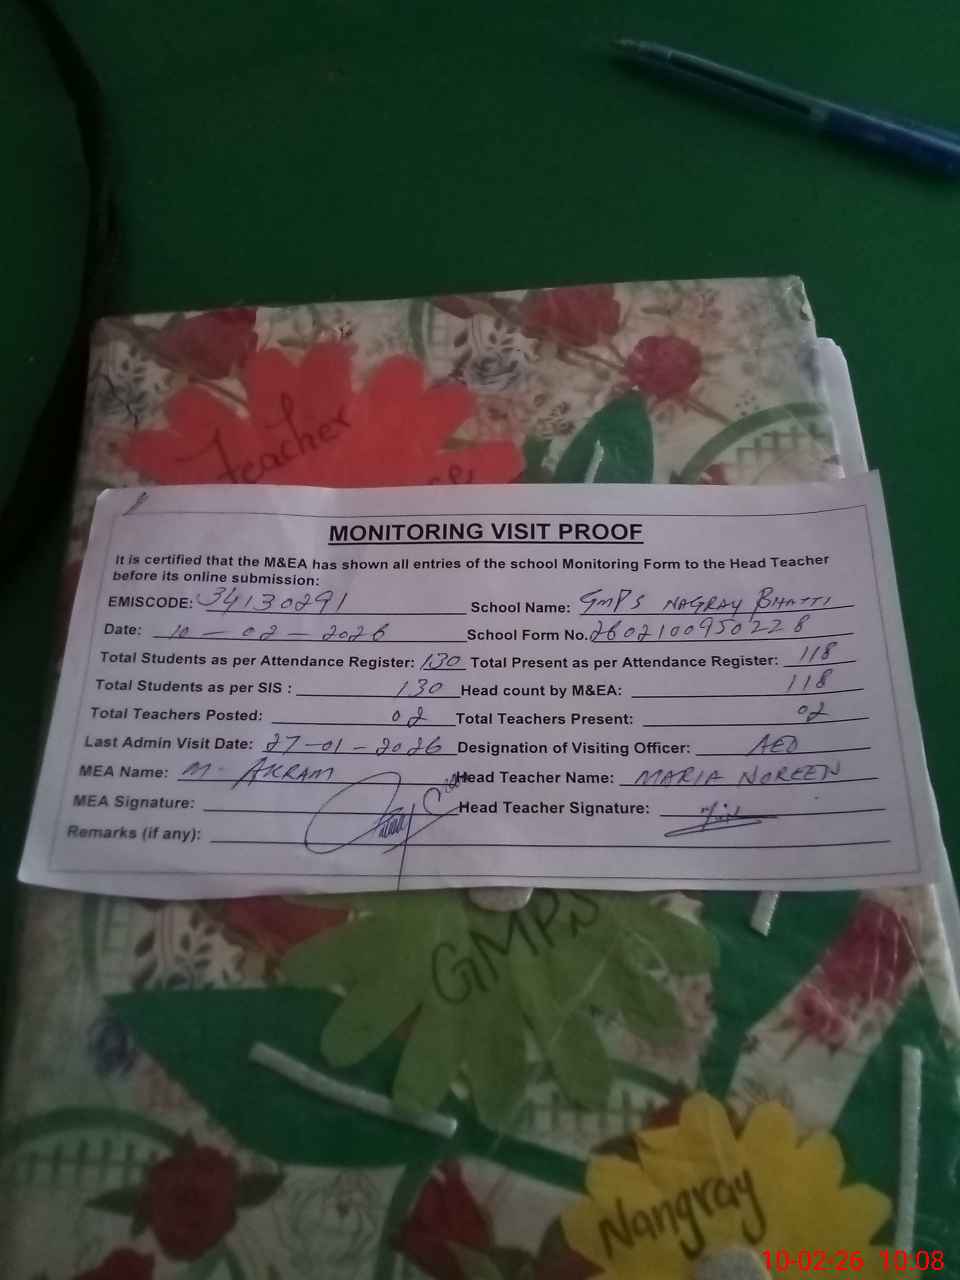 Teacher
MONITORING VISIT PROOF
It is certified that the M&EA has shown all entries of the school Monitoring Form to the Head Teacher
before its online submission:
EMISCODE: 34130291 School Name: GMPS NAGRAY BHATTI
Date: 10-02-2026 School Form No. 2602100950228
Total Students as per Attendance Register: 130 Total Present as per Attendance Register: 118
Total Students as per SIS : 130 Head count by M&EA: 118
Total Teachers Posted: 02 Total Teachers Present: 02
Last Admin Visit Date: 27-01-2026 Designation of Visiting Officer: AEO
MEA Name: M. AKRAM Head Teacher Name: MARIA NOREEN
MEA Signature: Head Teacher Signature:
Remarks (if any):
GMPS
Nangray
10-02-26 10:08